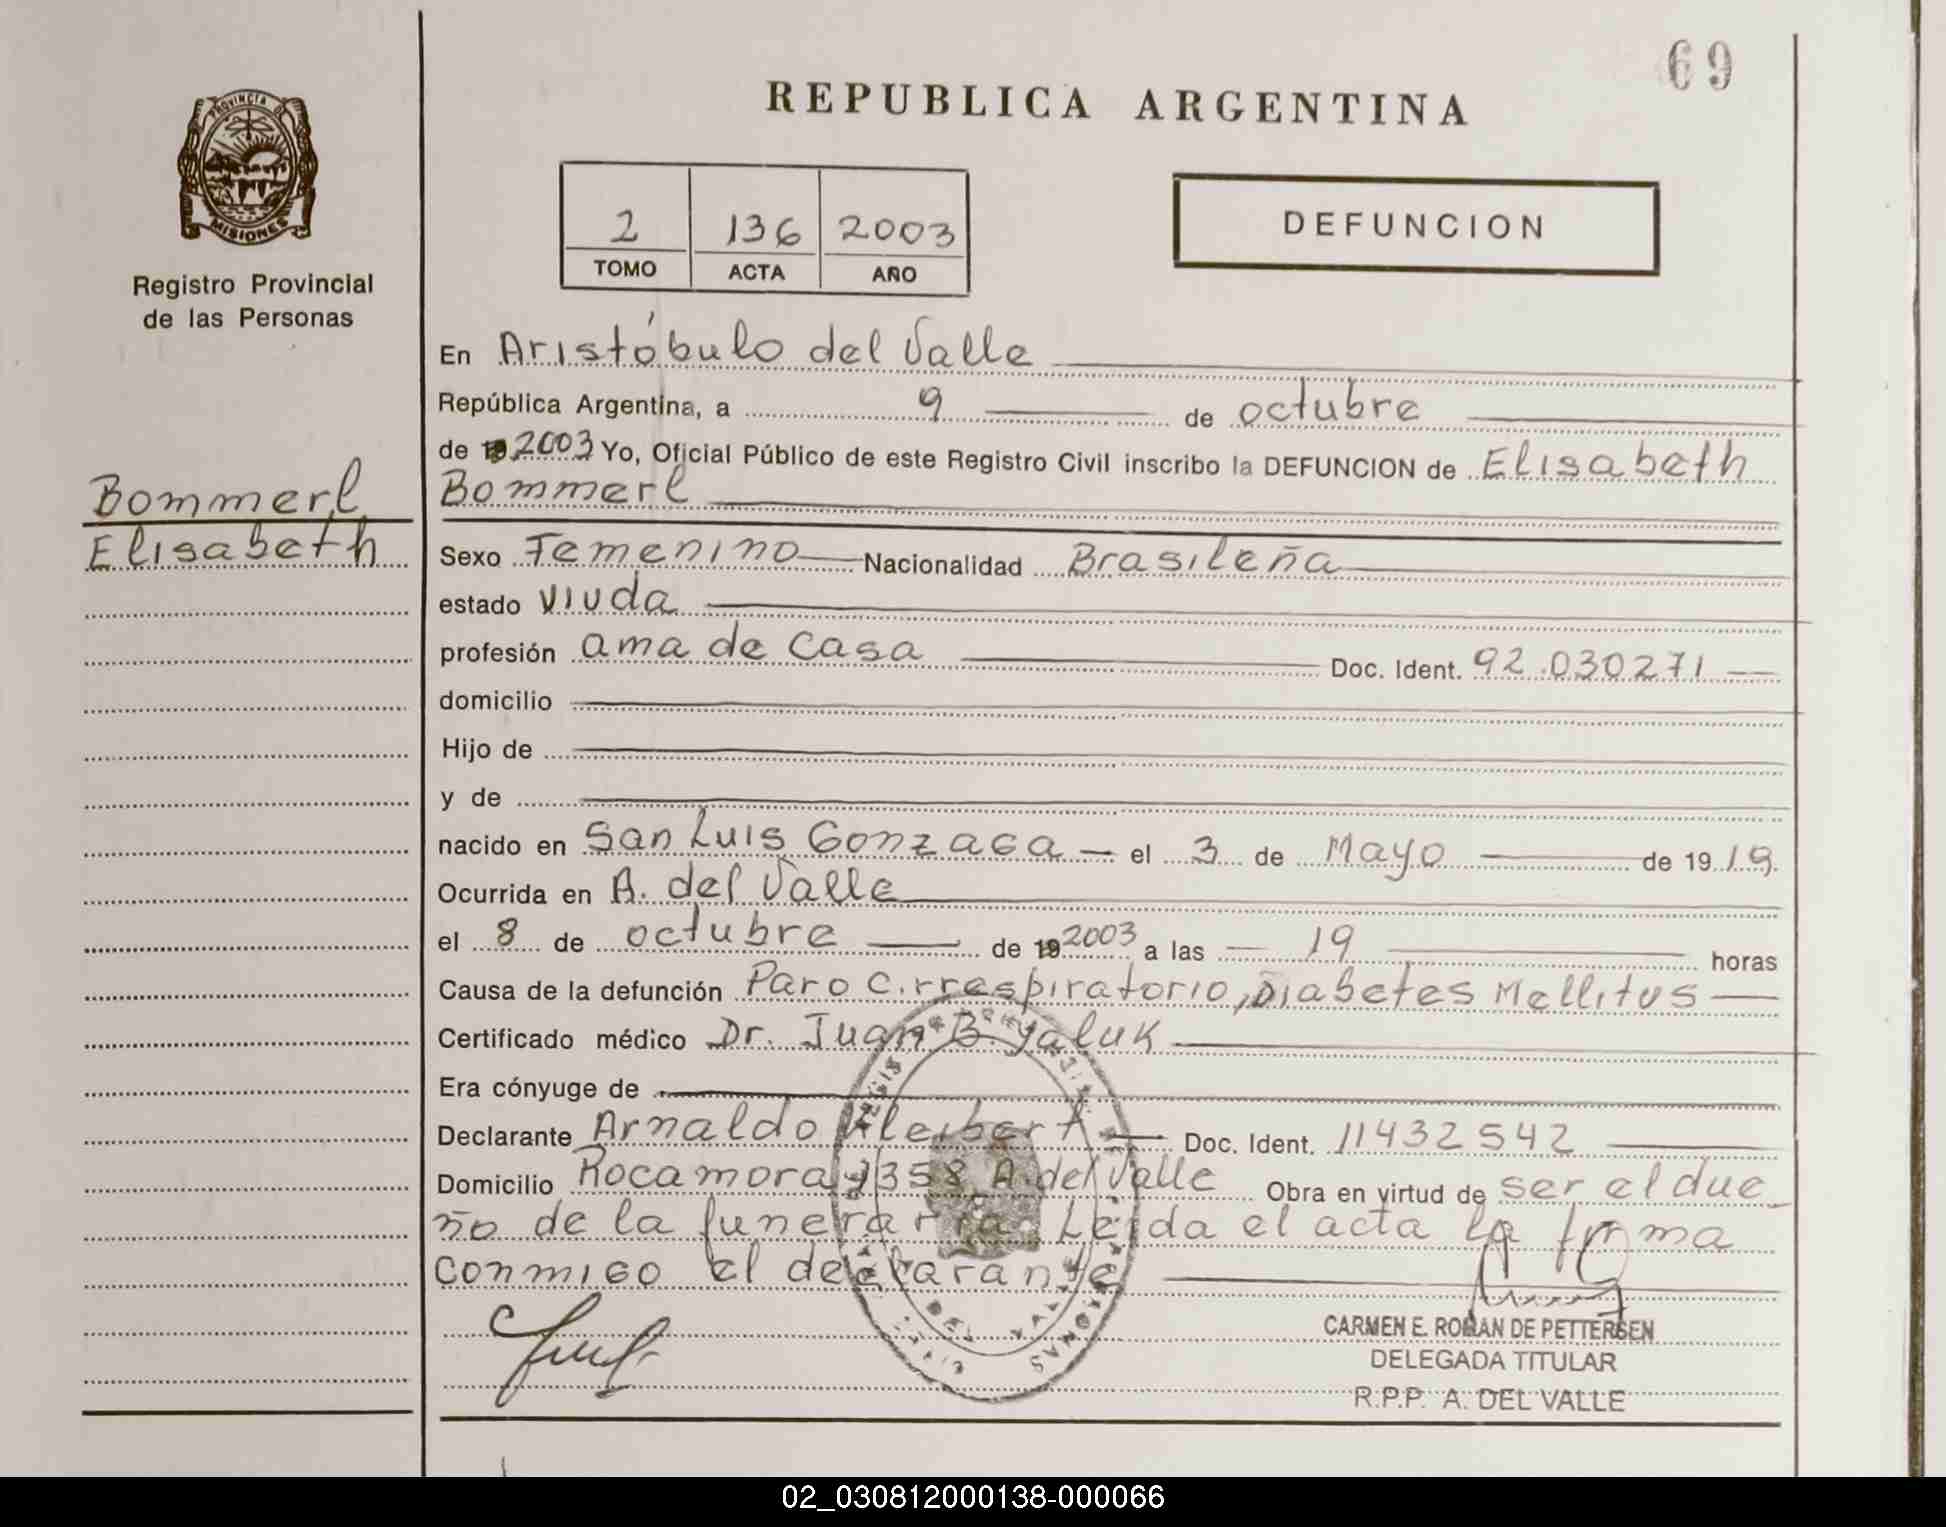 69
REPUBLICA ARGENTINA
PROVINCIA D
MISIONES
Registro Provincial
de las Personas
2 136 2003
TOMO ACTA AÑO
DEFUNCION
Bommerl
Elisabeth
En Aristóbulo del Valle
República Argentina, a 9 de octubre
de 19 2003 Yo, Oficial Público de este Registro Civil inscribo la DEFUNCION de Elisabeth
Bommerl
Sexo Femenino Nacionalidad Brasileña
estado viuda
profesión ama de casa Doc. Ident. 92.030271
domicilio
Hijo de
y de
nacido en San Luis Gonzaga el 3 de Mayo de 1919.
Ocurrida en A. del Valle
el 8 de octubre de 19 2003 a las 19 horas
Causa de la defunción Paro C.rrespiratorio, Diabetes Mellitus
Certificado médico Dr. Juan B. Yaluk
Era cónyuge de
Declarante Arnaldo Kleibert Doc. Ident. 11432542
Domicilio Rocamora 1358 A. del Valle Obra en virtud de ser el due
ño de la funeraria. Leída el acta la firma
conmigo el declarante
CARMEN E. ROMAN DE PETTERSEN
DELEGADA TITULAR
R.P.P. A. DEL VALLE
02_030812000138-000066